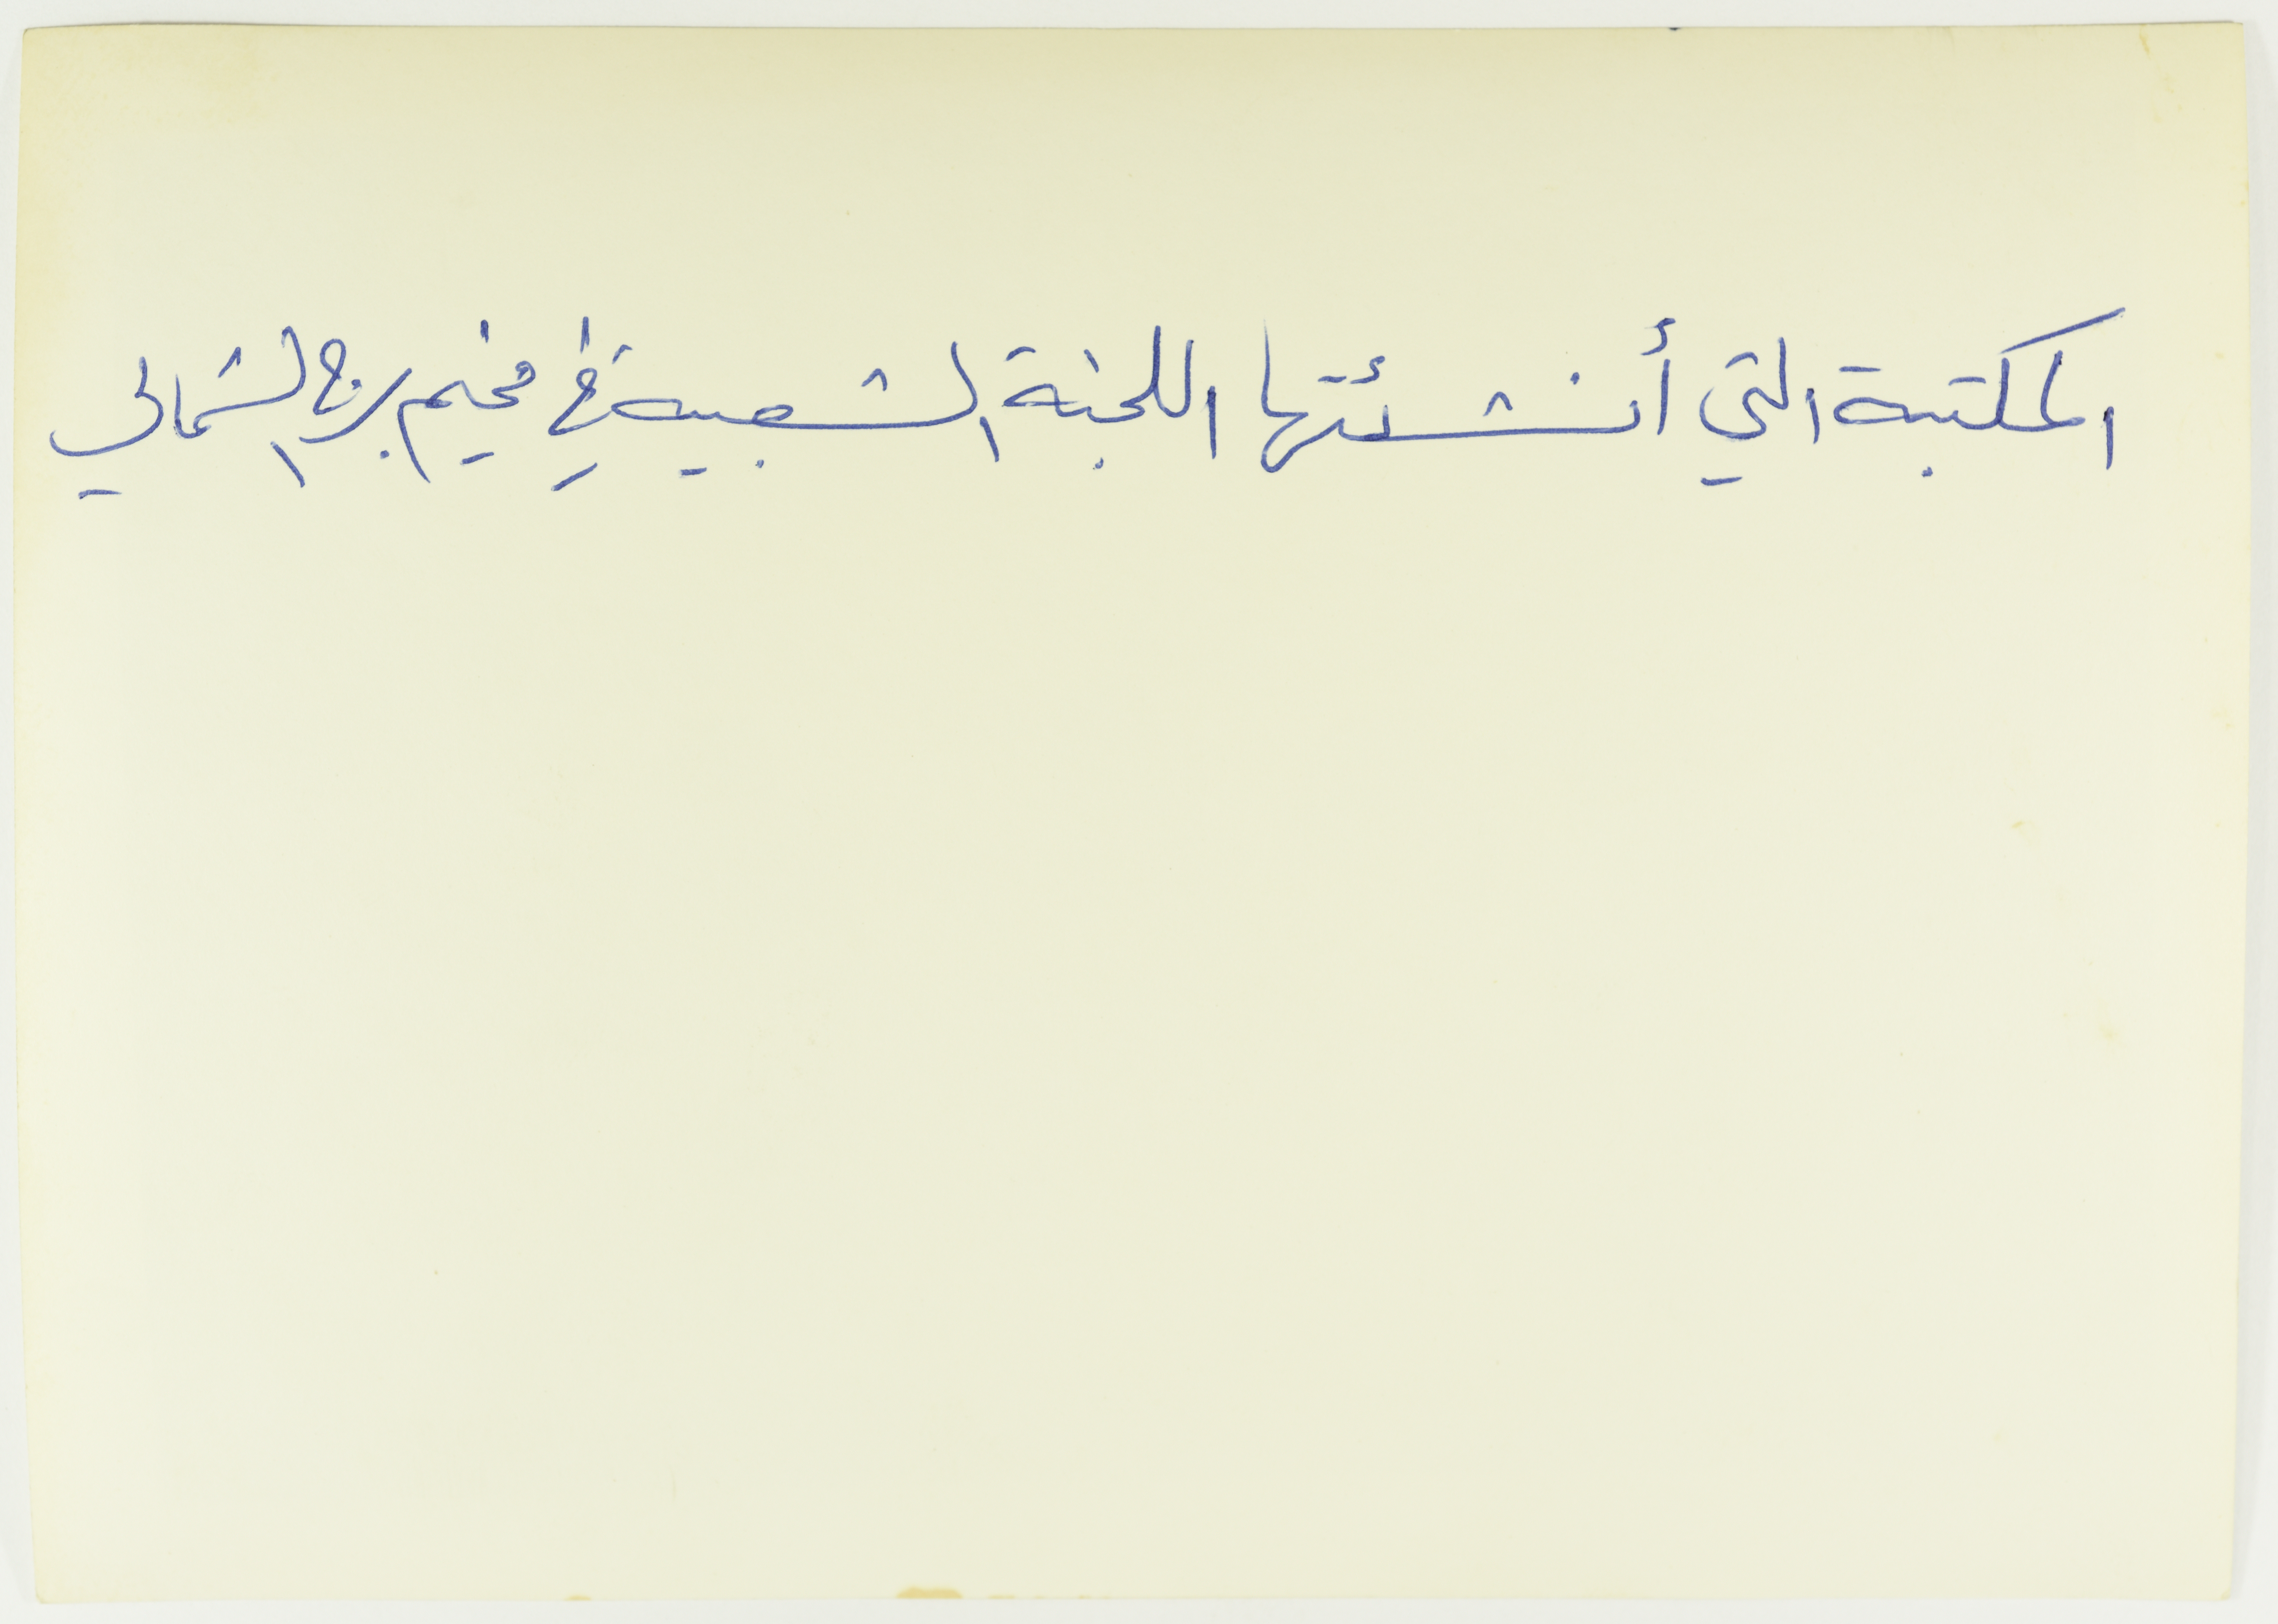 المكتبة التي أنشئتها اللجنة الشعبية في مخيم برج الشمالي